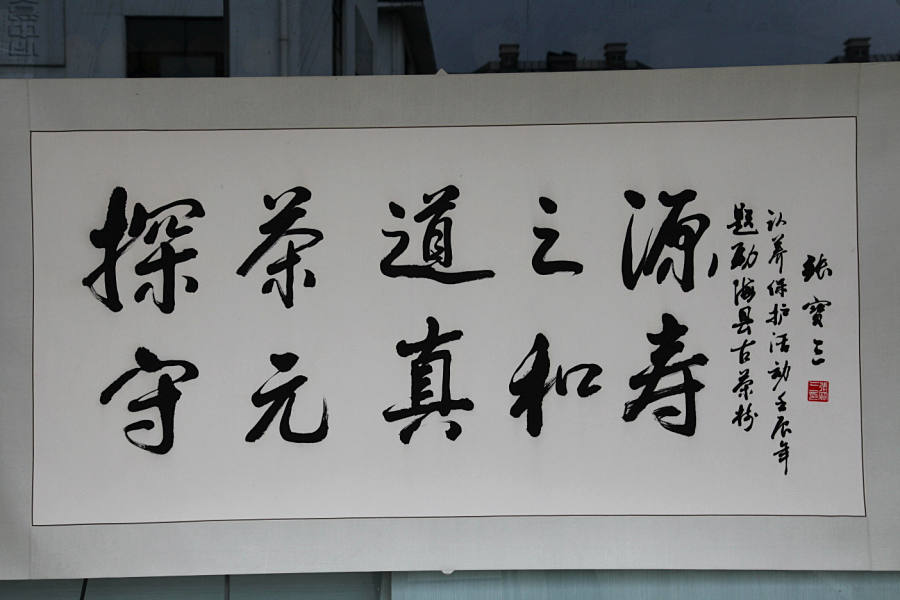 探茶道之源
守元真和寿
题勐海县古茶树
认养保护活动壬辰年
张寳三